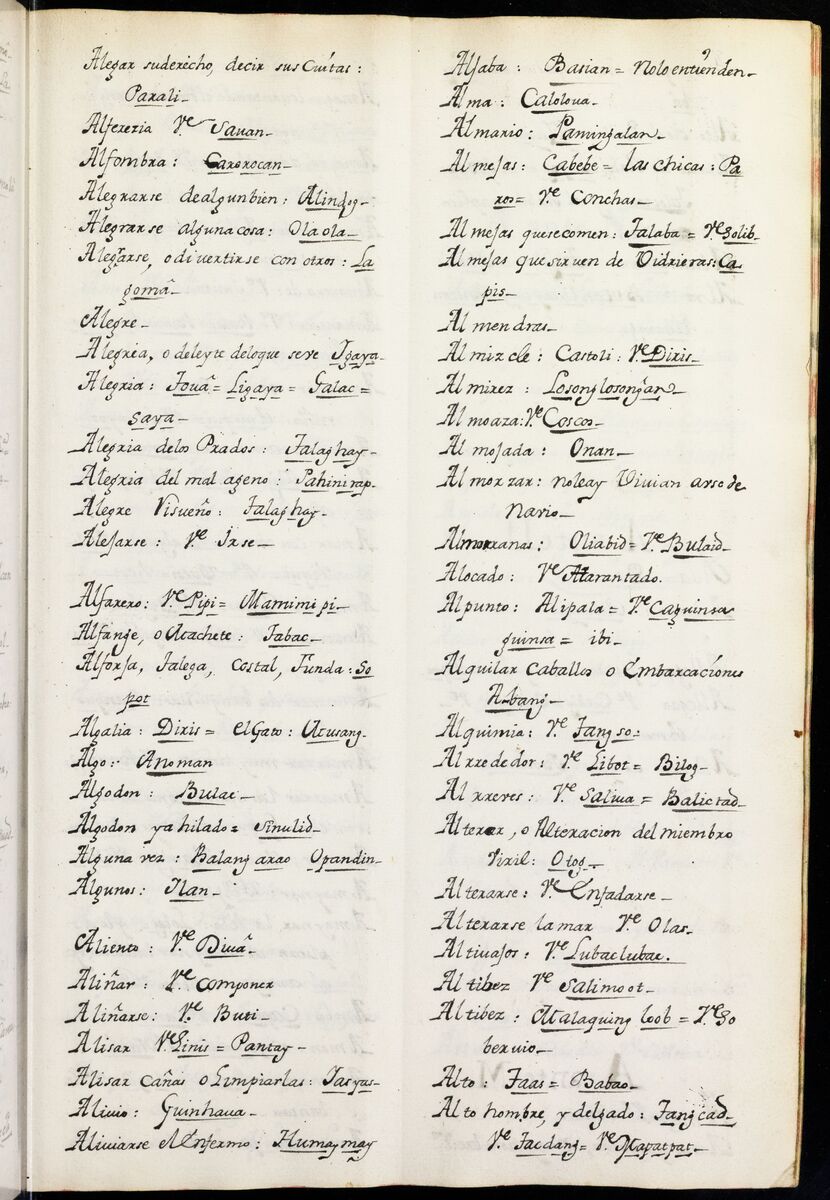 Alegar suderecho, decir sus Cuitas:
Parali_
Alfereria Vᵉ Sauan_
Alfombra: Carorocan_
Alegrarse dealgun bien: Alindog_
Alegrarse algunacosa: Olaola_
Alegrarse, o divertirse con otros: La
gomâ_
Alegre_
Alegria, o deleyte deloque seve Igaya_
Alegria: Touâ= Ligaya= Galac=
saya_
Alegria delos Prados: Talaghay_
Alegria del mal ageno: Pahinirap_
Alegre Risueño: Talaghay_
Alejarse: Vᵉ Irse_
Alfarero: Vᵉ Pipi= Mamimipi_
Alfange, o Acachete: Tabac_
Alforja, Talega, Costal, Funda: So
pot
Algalia: Diris= el Gato: Atusang_
Algo: Anoman
Algodon: Bulac_
Algodon ya hilado= Sinulid_
Alguna vez: Balang arao Opandin_
Algunos: Ilan_
Aliento: Vᵉ Diuâ_
Aliñar: Vᵉ componer
Aliñarse: Vᵉ Buti_
Alisar Vᵉ Linis= Pantay_
Alisar cañas o Limpiarlas: Tasyas_
Alivio: Guinhaua_
Aliviarse el Enfermo: Humaymay
Aljaba: Basian= No lo entienden_
Alma: Caloloua_
Almario: Pamingalan_
Almejas: Cabebe= las chicas: Pa
ros= Vᵉ Conchas_
Almejas que se comen: Talaba= Vᵉ Solib_
Almejas que sirven de Vidrieras: Ca
pis_
Almendras_
Almizcle: Castoli: Vᵉ Diris_
Almirez: Losonglosongan_
Almoaza: Vᵉ Coscos_
Almojada: Onan_
Almorzar: no le ay Vivian arse de
nario_
Almorranas: Oliabid= Vᵉ Bulaid_
Alocado: Vᵉ Atarantado.
Alpunto: Alipala= Vᵉ Caguinsa
guinsa= ibi_
Alquilar Caballos o Embarcaciones
Abang_
Alquimia: Vᵉ Tangso:
Alrrededor: Vᵉ Libot= Bilog_
Alrreves: Vᵉ Saliua= Balictad_
Alterar, o Alteracion del miembro
Viril: Otog_
Alterarse: Vᵉ Enfadarse_
Alterarse la mar Vᵉ Olas_
Altivajos: Vᵉ Lubaclubac.
Altibez Vᵉ Salimoot_
Altibez: Malaquing loob= Vᵉ So
bervio_
Alto: Taas= Babao_
Alto hombre, y delgado: Tangcad_
Vᵉ Tacdang= Vᵉ Mapatpat_